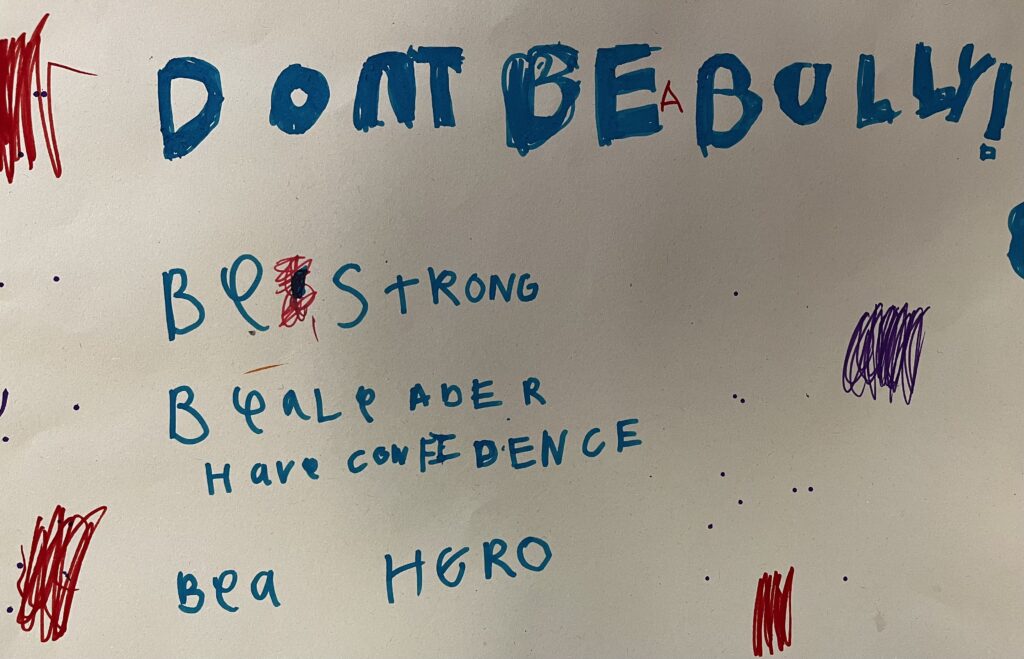 DONT BE A BULLY!
Be STRONG
Be a LeADER
Have CONFIDENCE
Be a HERO